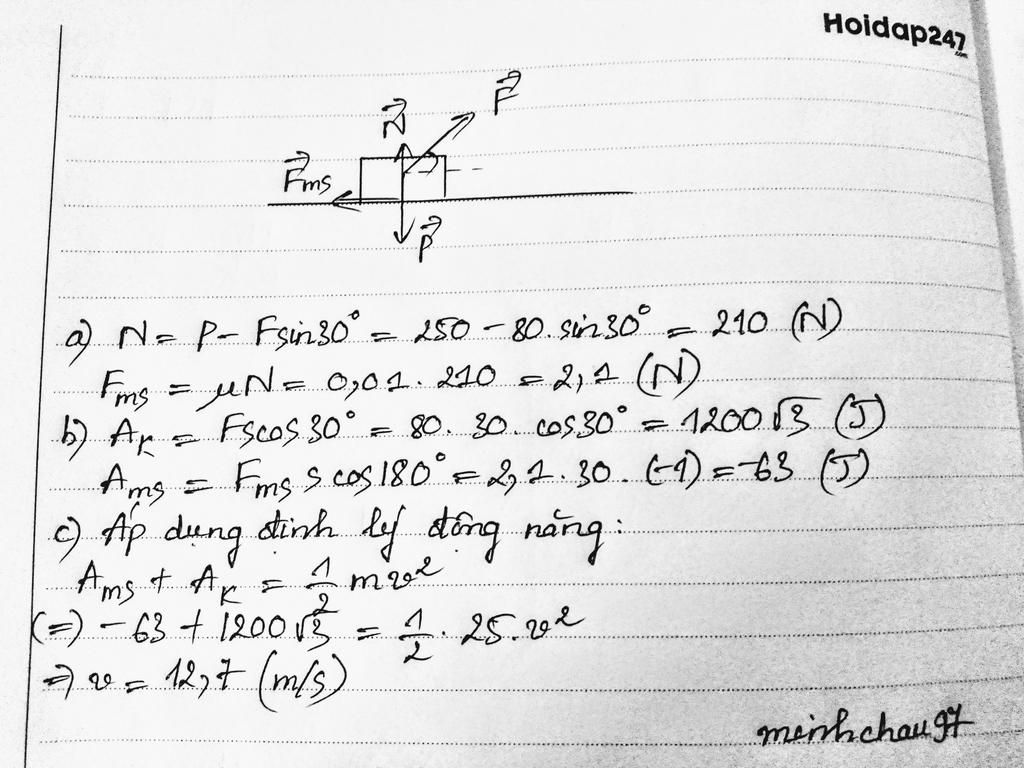 Hoidap247
.com
N⃗
F⃗
F⃗ms
P⃗
a) N = P - Fsin30° = 250 - 80. sin30° = 210 (N)
Fms = μN = 0,01. 210 = 2,1 (N)
b) AK = Fscos30° = 80. 30. cos30° = 1200√3 (J)
Ams = Fms s cos180° = 2,1. 30. (-1) = -63 (J)
c) Áp dụng định lý động năng:
Ams + AK = 1/2 mv²
(=) -63 + 1200√3 = 1/2. 25. v²
=) v = 12,7 (m/s)
minhchau97